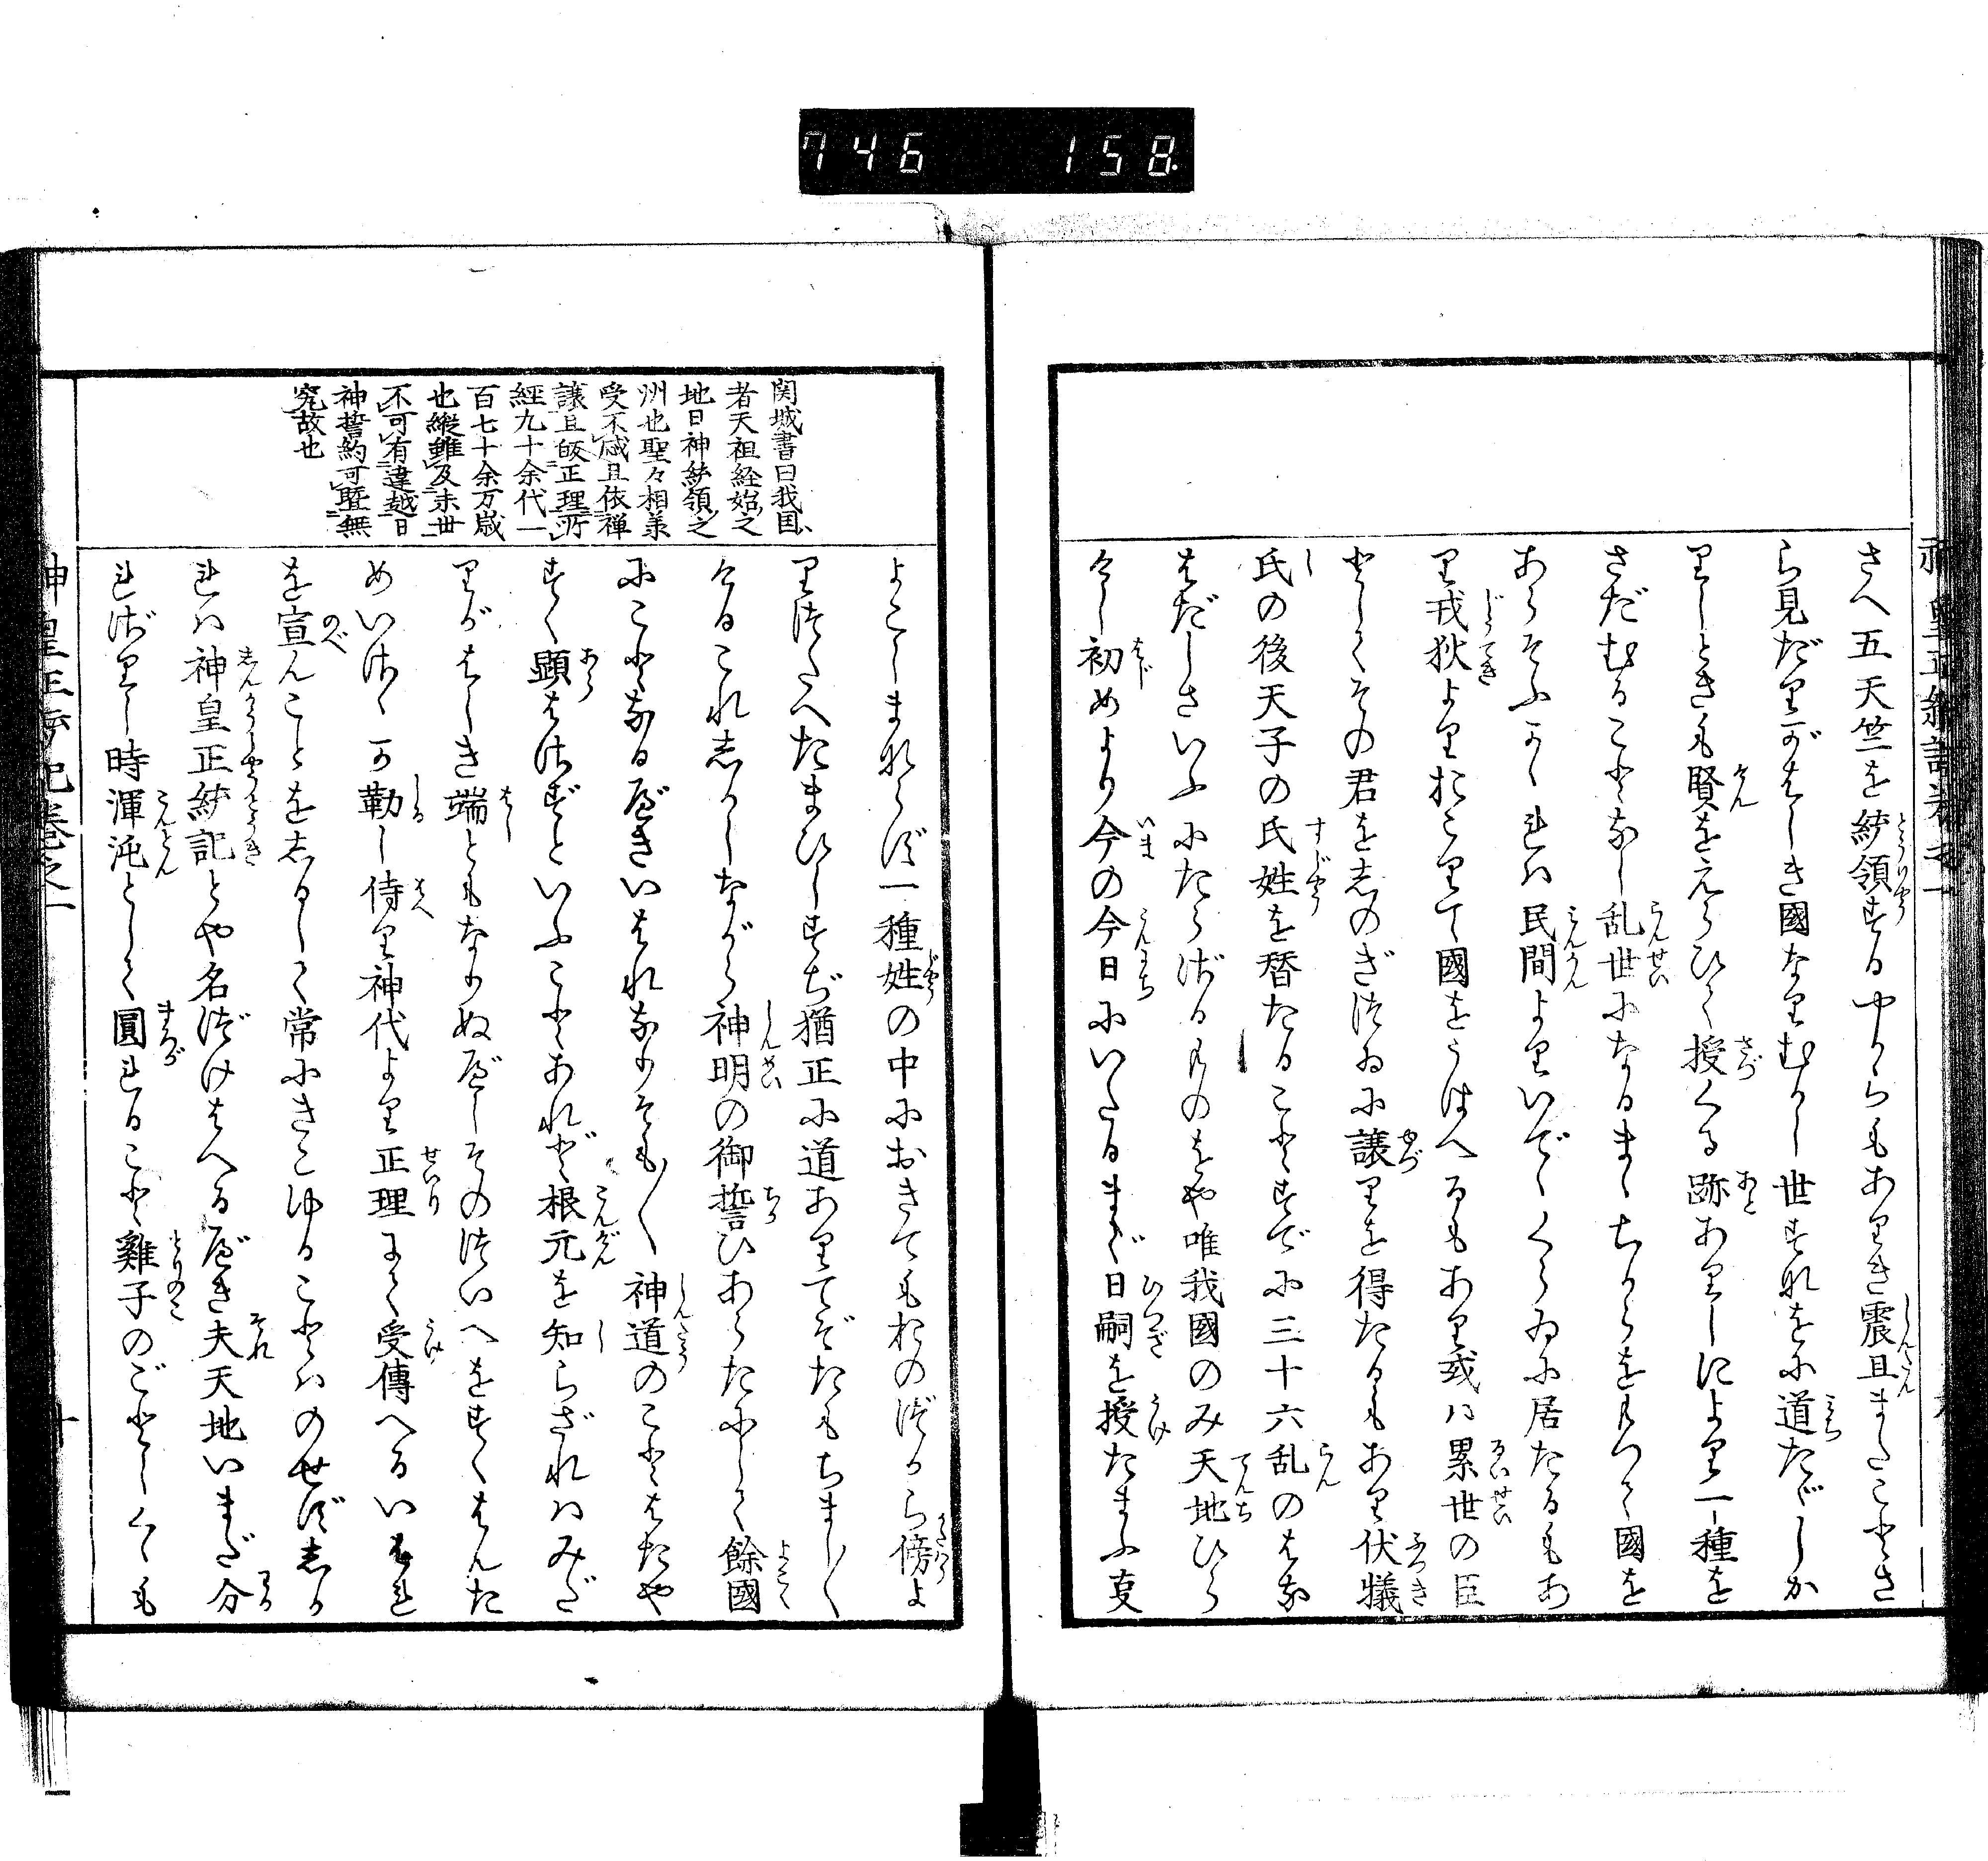 746 158
さへ五天竺を統領するやからもありき震旦またことさ
ら見だりがはしき國なりむかし世すなほに道たゞしか
りしときも賢をえらひて授くる跡ありしにより一種を
さだむることなし乱世になるまゝちからをもつて國を
あらそふかゝれは民間よりいでゝくらゐに居たるもあ
り戎狄よりおこりて國をうばへるもあり或は累世の臣
としてその君をしのぎつゐに譲りを得たるもあり伏犧
氏の後天子の氏姓を替たること既すでに三十六乱のはな
はだしさいふにたらざるものをや唯我國のみ天地ひら
けし初めより今の今日にいたるまで日嗣を授たまふ叓
関城書曰我国
者天祖経始之
地日神統領之
洲也聖々相承
受不感且依禅
譲且皈正理所
經九十余代一
百七十余万歳
也縦雖及末世
不可有違越日
神誓約可曁無
究故也
よこしまならず一種姓の中におきてもおのづから傍よ
りつたへたまひしすら猶正に道ありてぞたもちまし〳〵
ける これしかしながら神明の御誓ひあらたにして餘國
にことなるべきいはれなりそも〳〵神道のことはたや
すく顕はさずといふことあれど根元を知らざれはみだ
りがはしき端ともなりぬべしそのついへをすくはんた
めいさゝか勒し侍り神代より正理にて受傳へるいはれ
を宣んことをしるして常にきこゆることはのせずしか
れは神皇正統記とや名づけはへるべき夫天地いまだ分
れざりし時渾沌として圓れること雞子のごとしくゝも
神皇正統記巻之一 十